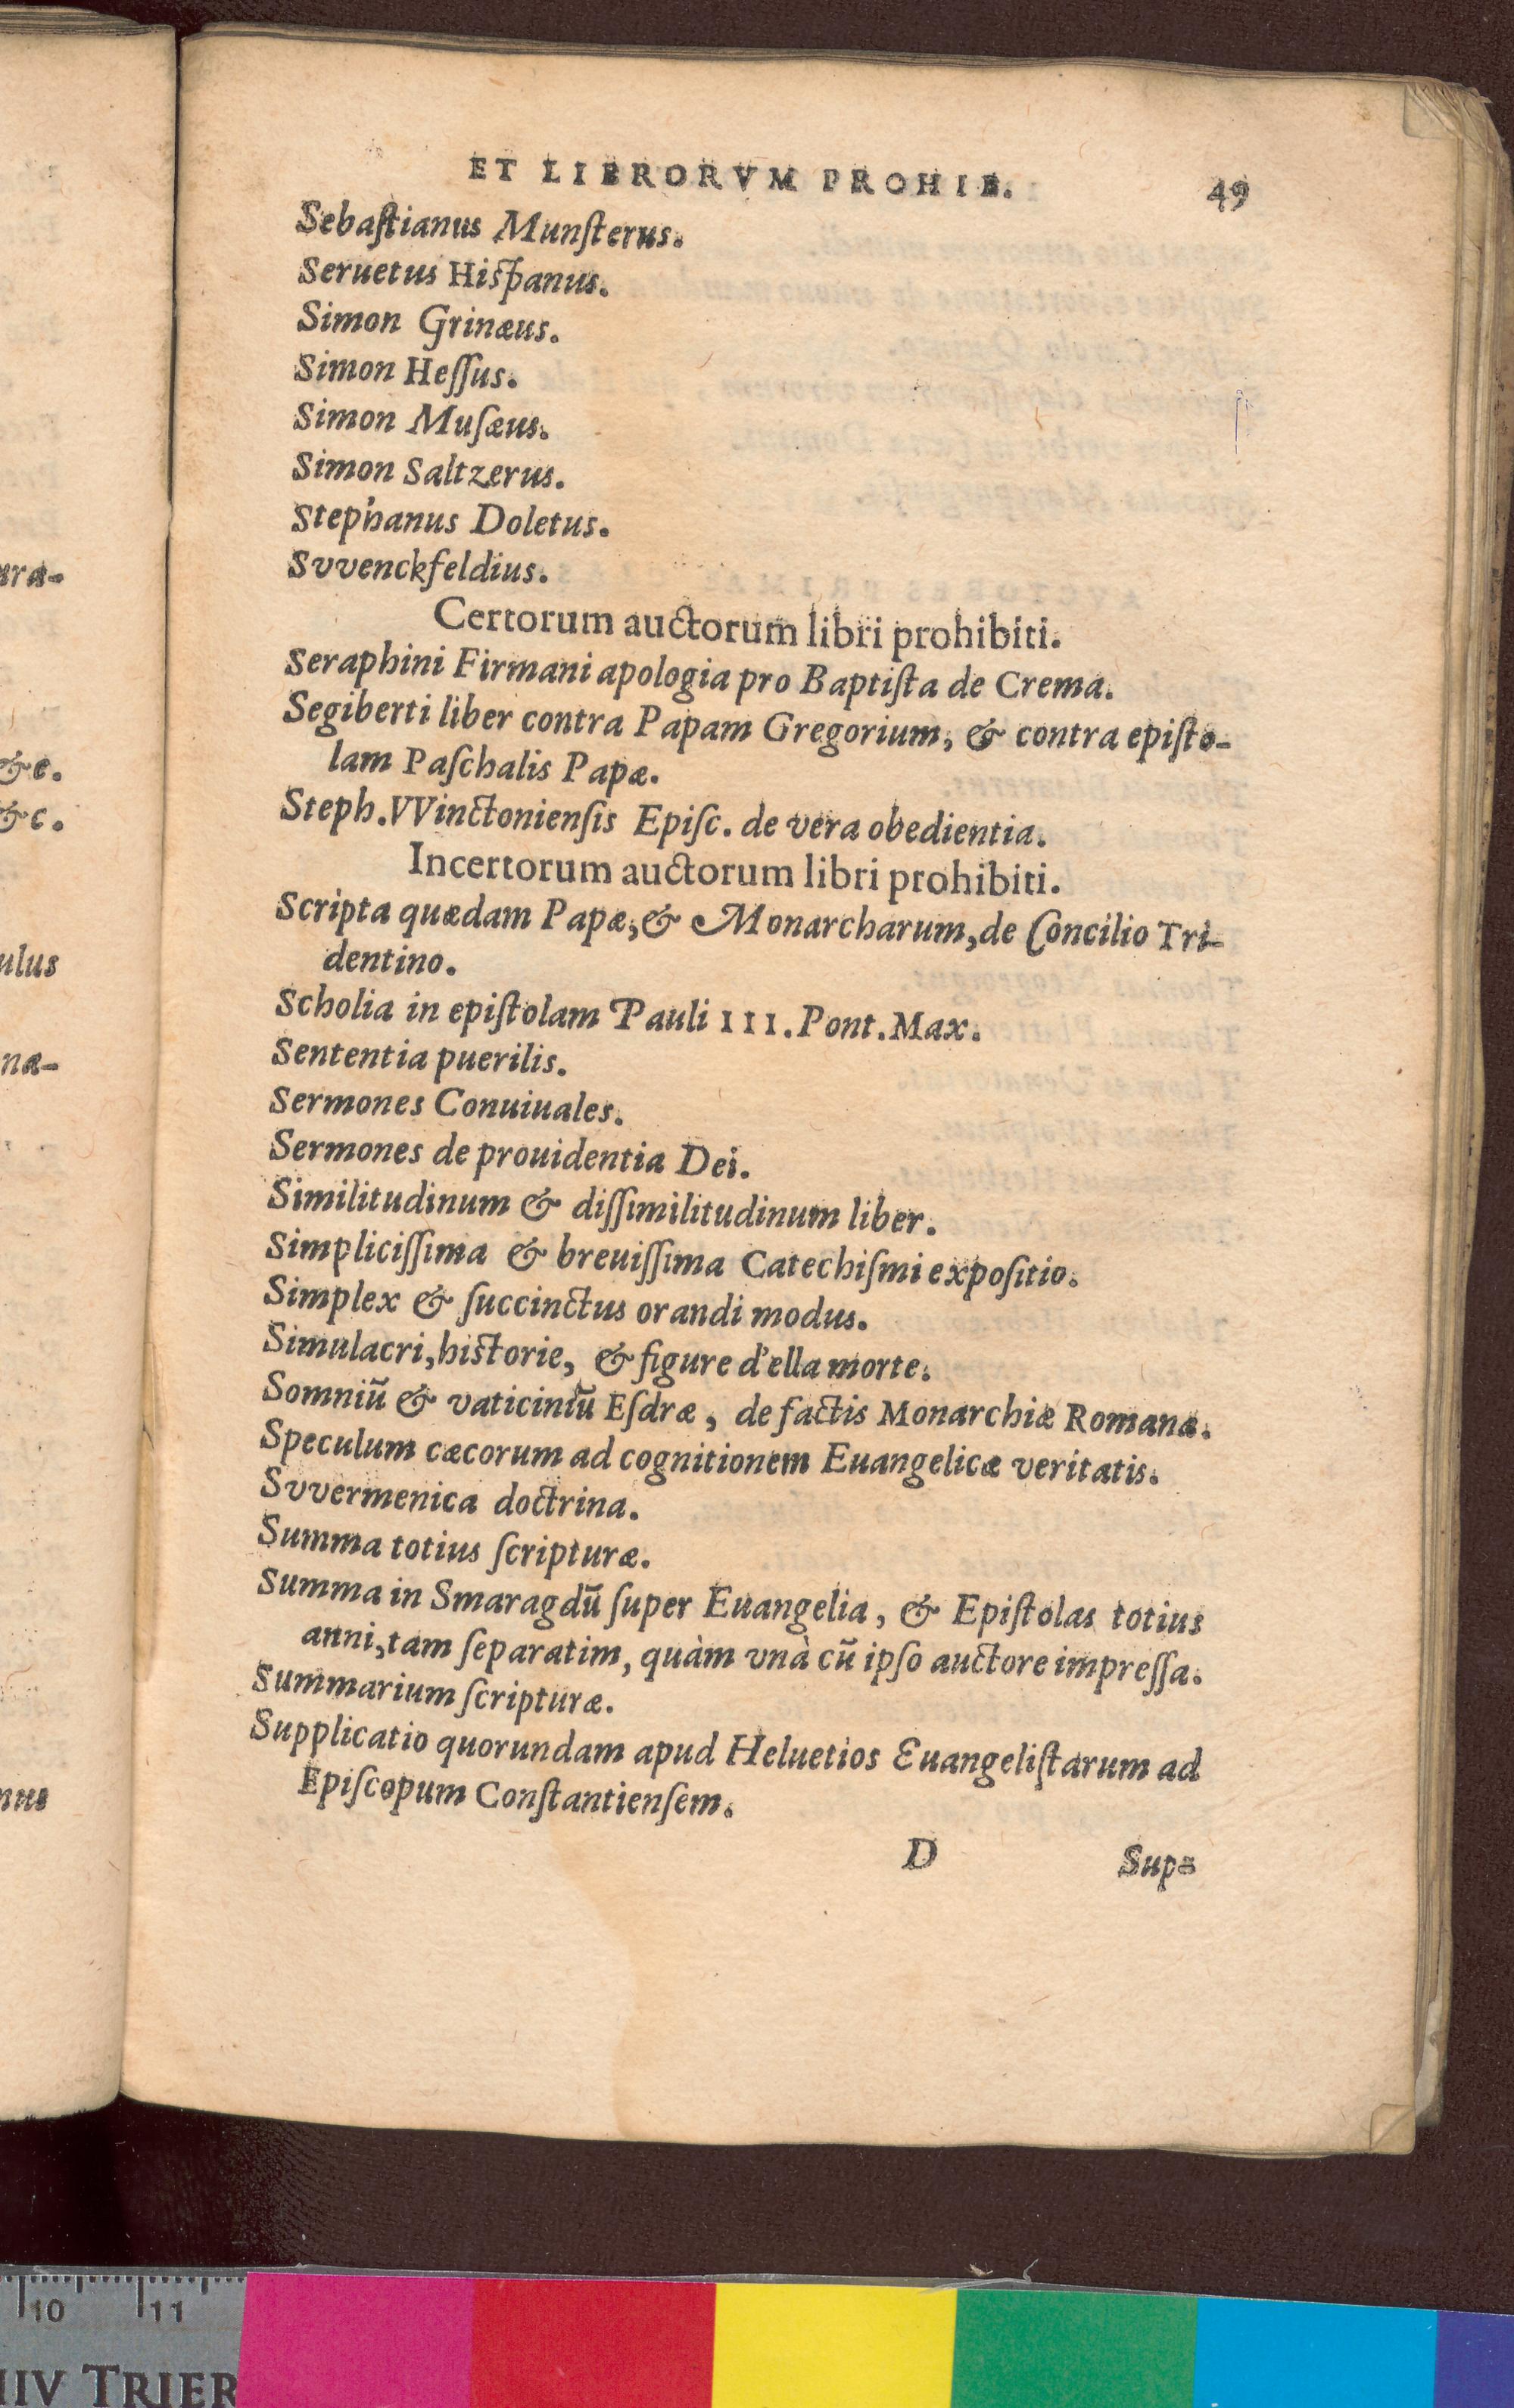 ET LIBRORVM PROHIB. 49
Sebaſtianus Munſterus.
Seruetus Hiſpanus.
Simon Grinæus.
Simon Heſſus.
Simon Muſæus.
Simon Saltzerus.
Stephanus Doletus.
Svvenckfeldius.
Certorum auctorum libri prohibiti.
Seraphini Firmani apologia pro Baptiſta de Crema.
Segiberti liber contra Papam Gregorium, & contra epiſto-
lam Paſchalis Papæ.
Steph. VVinctonienſis Epiſc. de vera obedientia.
Incertorum auctorum libri prohibiti.
Scripta quædam Papæ, & Monarcharum, de Concilio Tri-
dentino.
Scholia in epiſtolam Pauli III. Pont. Max.
Sententia puerilis.
Sermones Conuiuales.
Sermones de prouidentia Dei.
Similitudinum & diſſimilitudinum liber.
Simpliciſſima & breuiſſima Catechiſmi expoſitio.
Simplex & ſuccinctus orandi modus.
Simulacri, hiſtorie, & figure d'ella morte.
Somniū & vaticiniū Eſdræ, de factis Monarchiæ Romanæ.
Speculum cæcorum ad cognitionem Euangelicæ veritatis.
Svvermenica doctrina.
Summa totius ſcripturæ.
Summa in Smaragdū ſuper Euangelia, & Epiſtolas totius
anni, tam ſeparatim, quàm vnà cū ipſo auctore impreſſa.
Summarium ſcripturæ.
Supplicatio quorundam apud Heluetios Euangeliſtarum ad
Epiſcopum Conſtantienſem.
D Sup-
ura-
&c.
&c.
ulus
næ-
nus
10 11
HIV TRIER